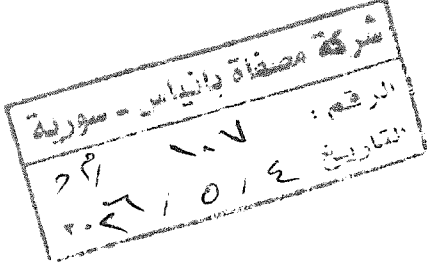 شركة مصفاة بانياس - سورية
الرقم : ١٠٧
التاريخ ٤ / ٥ / ٢٠٢٦